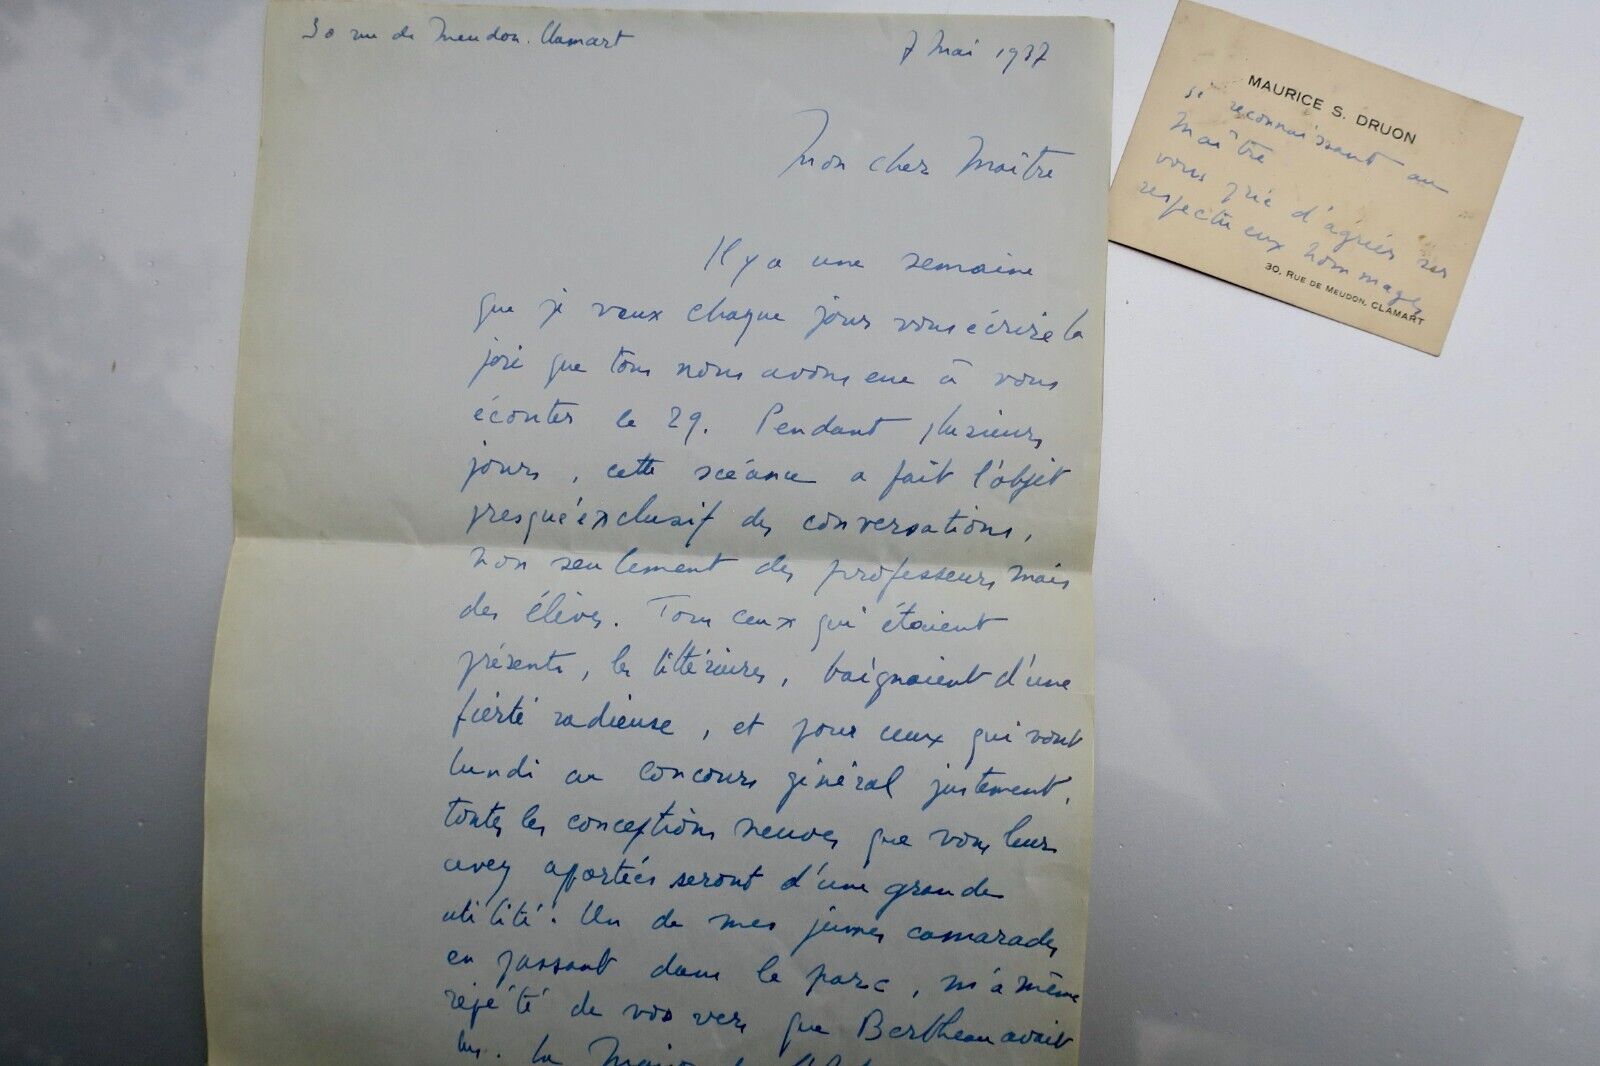 30 rue de Meudon. Clamart
7 Mai 1937
Mon cher Maître
Il y a une semaine
que je veux chaque jour vous écrire la
joie que tous nous avons eue à vous
écouter le 29. Pendant plusieurs
jours, cette scéance a fait l'objet
presqu'exclusif des conversations,
non seulement des professeurs mais
des élèves. Tous ceux qui étaient
présents, les littéraires, baignaient d'une
fierté radieuse, et pour ceux qui vont
lundi au concours général justement,
toutes les conceptions neuves que vous leur
avez apportées seront d'une grande
utilité. Un de mes jeunes camarades
en passant dans le parc, m'a même
répété de vos vers que Bertheau avait
lus. Le
MAURICE S. DRUON
si reconnaissant au
Maître
vous prie d'agréer ses
respectueux hommages
30, RUE DE MEUDON, CLAMART